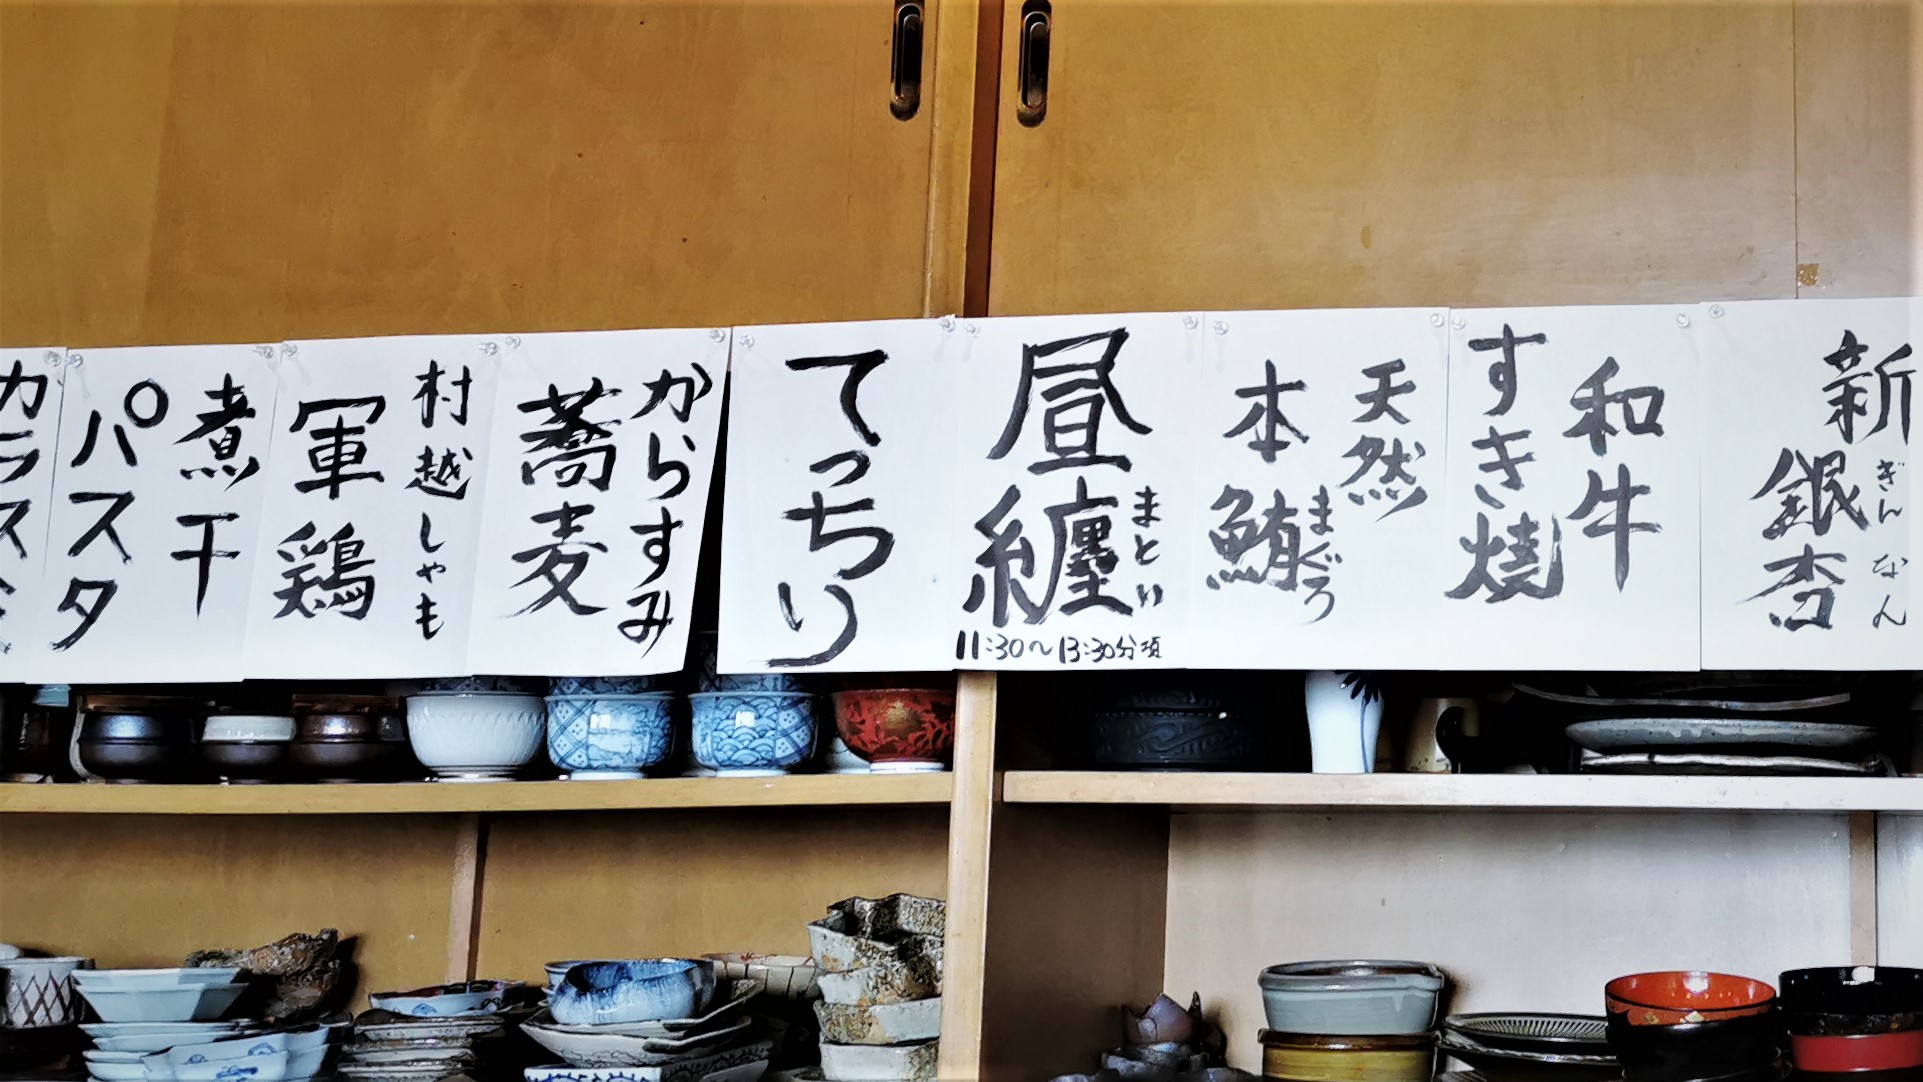 新
銀杏
ぎんなん
和牛
すき焼
天然
本鮪
まぐろ
昼纏
まとい
11:30~13:30分頃
てっちり
からすみ
蕎麦
村越しゃも
軍鶏
煮干
パスタ